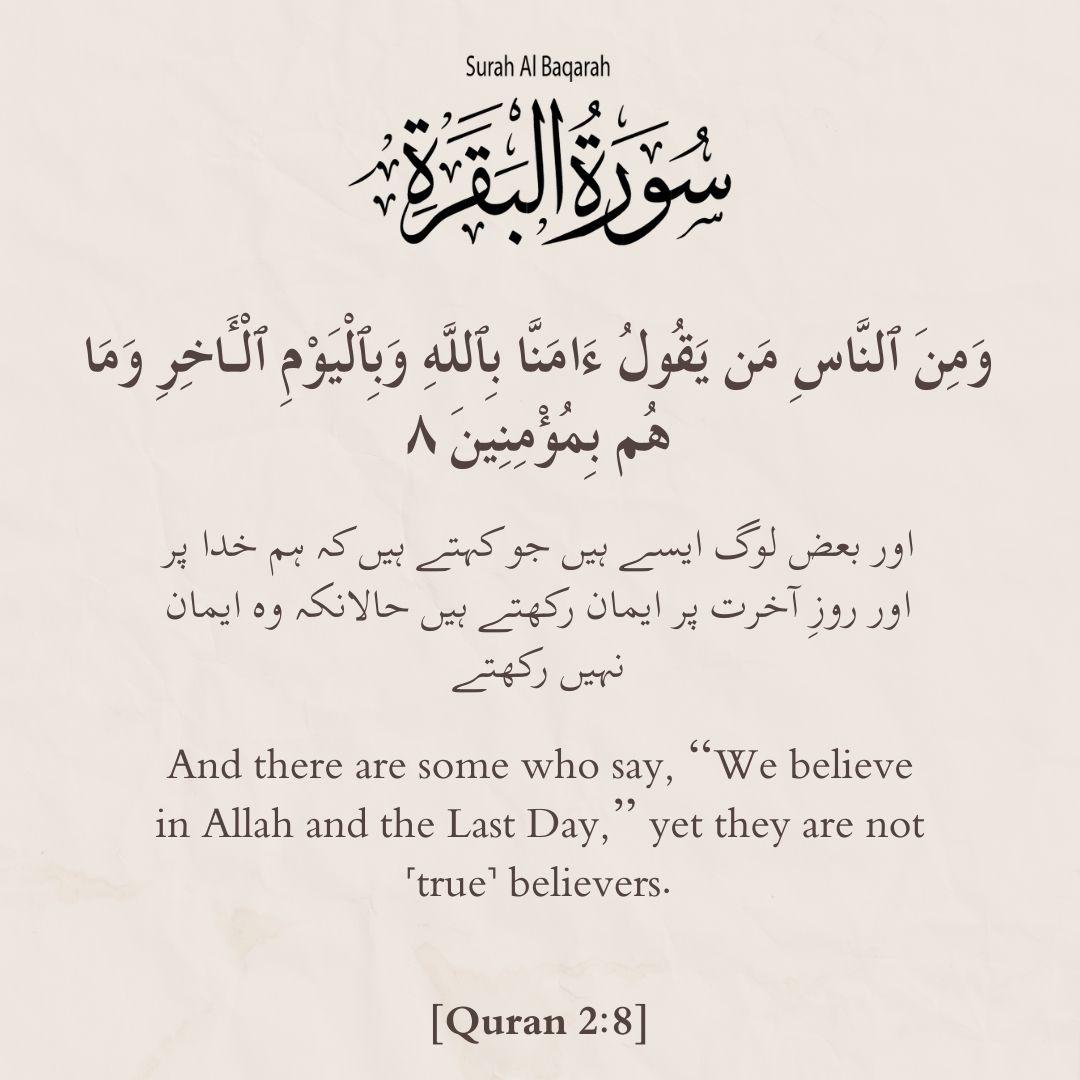 Surah Al Baqarah
سُورَةُ البَقَرَةِ
وَمِنَ ٱلنَّاسِ مَن يَقُولُ ءَامَنَّا بِٱللَّهِ وَبِٱلْيَوْمِ ٱلْـَٔاخِرِ وَمَا
هُم بِمُؤْمِنِينَ ٨
اور بعض لوگ ایسے ہیں جو کہتے ہیں کہ ہم خدا پر
اور روزِ آخرت پر ایمان رکھتے ہیں حالانکہ وہ ایمان
نہیں رکھتے
And there are some who say, “We believe
in Allah and the Last Day,” yet they are not
˹true˺ believers.
[Quran 2:8]